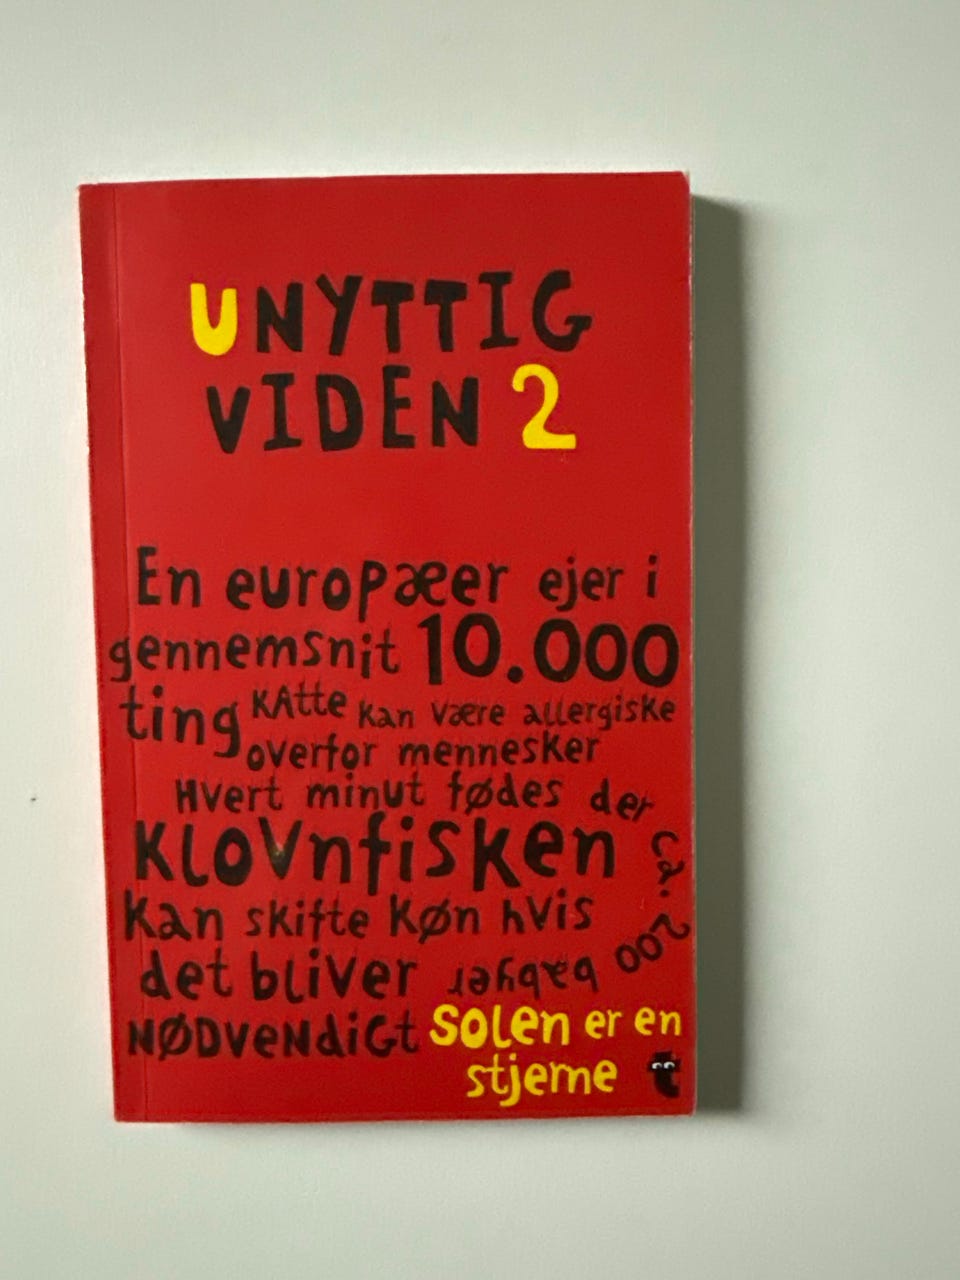 UNYTTIG
VIDEN 2
En europæer ejer i
gennemsnit 10.000
ting
KAtte kan være allergiske
overfor mennesker
Hvert minut fødes der
ca. 200
babyer
KLOVnfisken
kan skifte køn hvis
det bliver
NØDVENDiGt
solen er en
stjerne